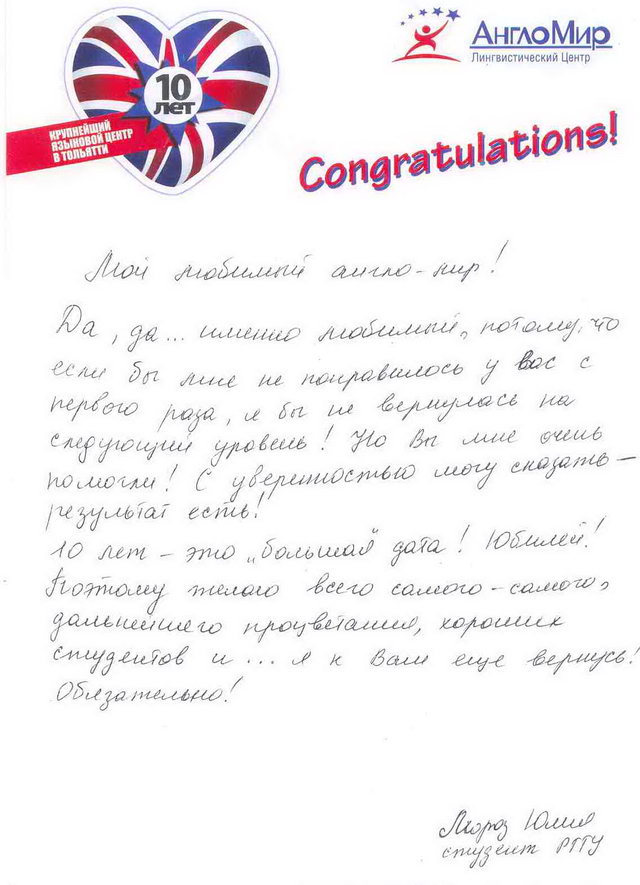 10
ЛЕТ
КРУПНЕЙШИЙ
ЯЗЫКОВОЙ ЦЕНТР
В ТОЛЬЯТТИ
АнглоМир
Лингвистический Центр
Congratulations!
Мой любимый англо-мир!
Да, да... именно любимый, потому, что
если бы мне не понравилось у вас с
первого раза, я бы не вернулась на
следующий уровень! Но Вы мне очень
помогли! С уверенностью могу сказать –
результат есть!
10 лет – это „большая" дата! Юбилей!
Поэтому желаю всего самого-самого,
дальнейшего процветания, хороших
студентов и ... я к Вам еще вернусь!
Обязательно!
Мороз Юлия
студент РГГУ